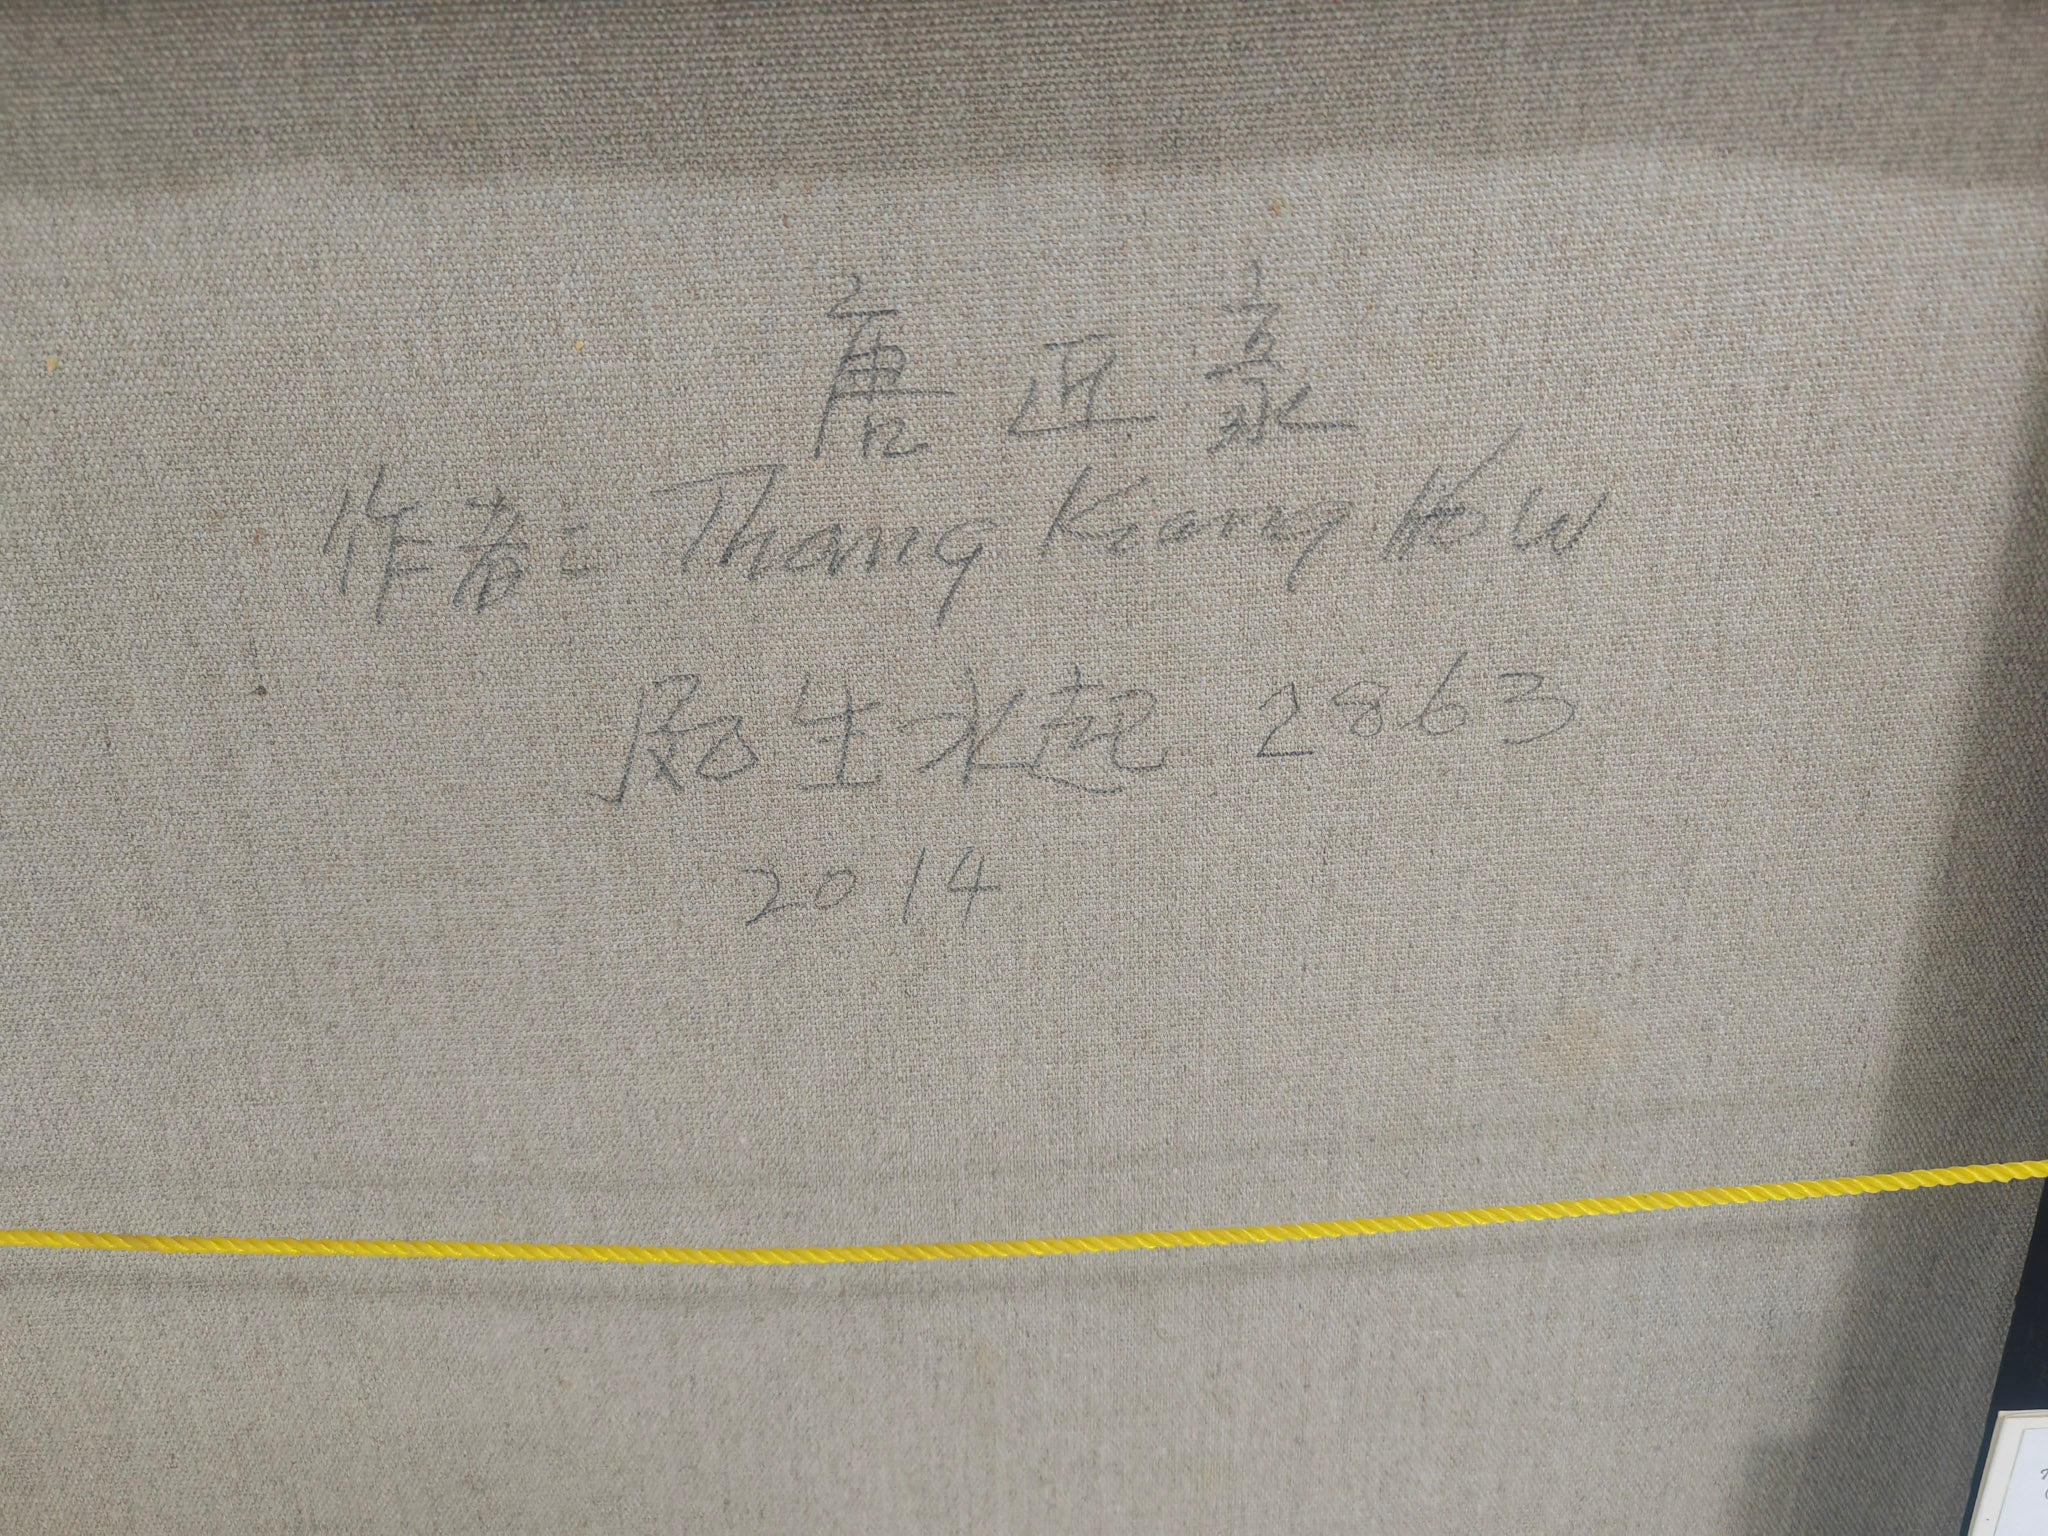 唐近豪
作者: Thang Kiang How
生水起 2863
2014